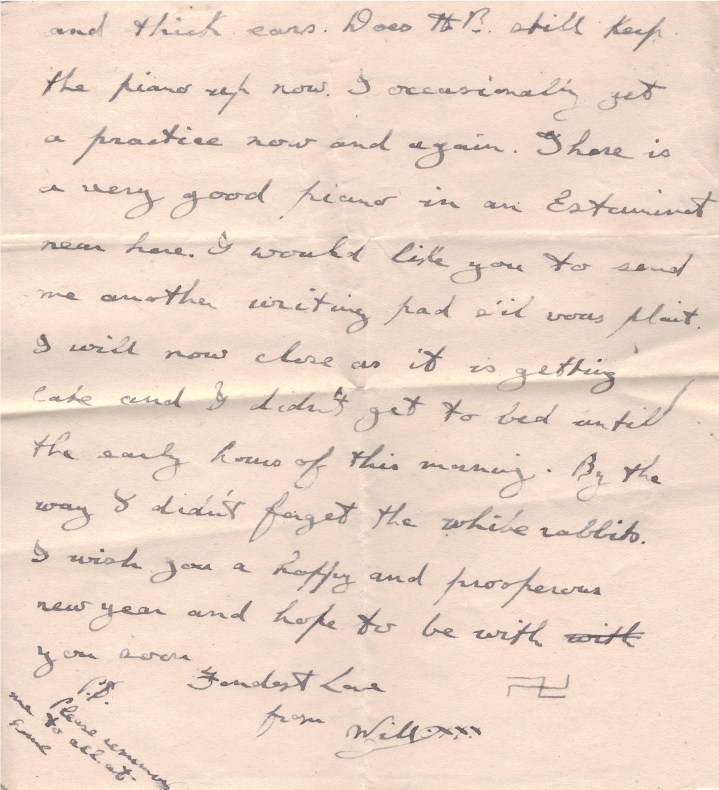 and thick ears. Does H.P. still keep
the piano up now. I occasionally get
a practice now and again. There is
a very good piano in an Estaminet
near here. I would like you to send
me another writing pad s'il vous plait.
I will now close as it is getting
late and I didn't get to bed until
the early hours of this morning. By the
way I didn't forget the white rabbits.
I wish you a happy and prosperous
new year and hope to be with with
you soon
Fondest Love
from Will xxx
Please remember
me to all at
home